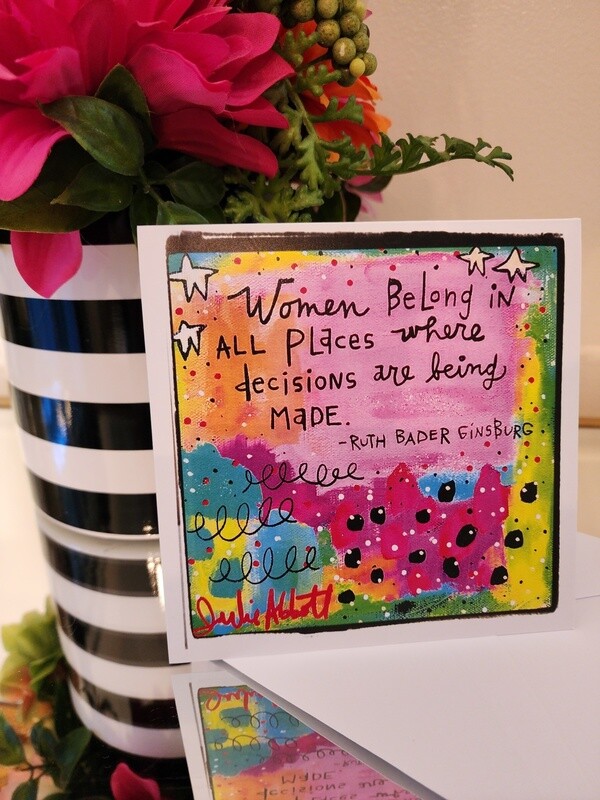 Women BeLong iN
ALL PLaces where
decisions are being
MaDE.
-RUTH BADER GiNSBURG
Julie Abbott